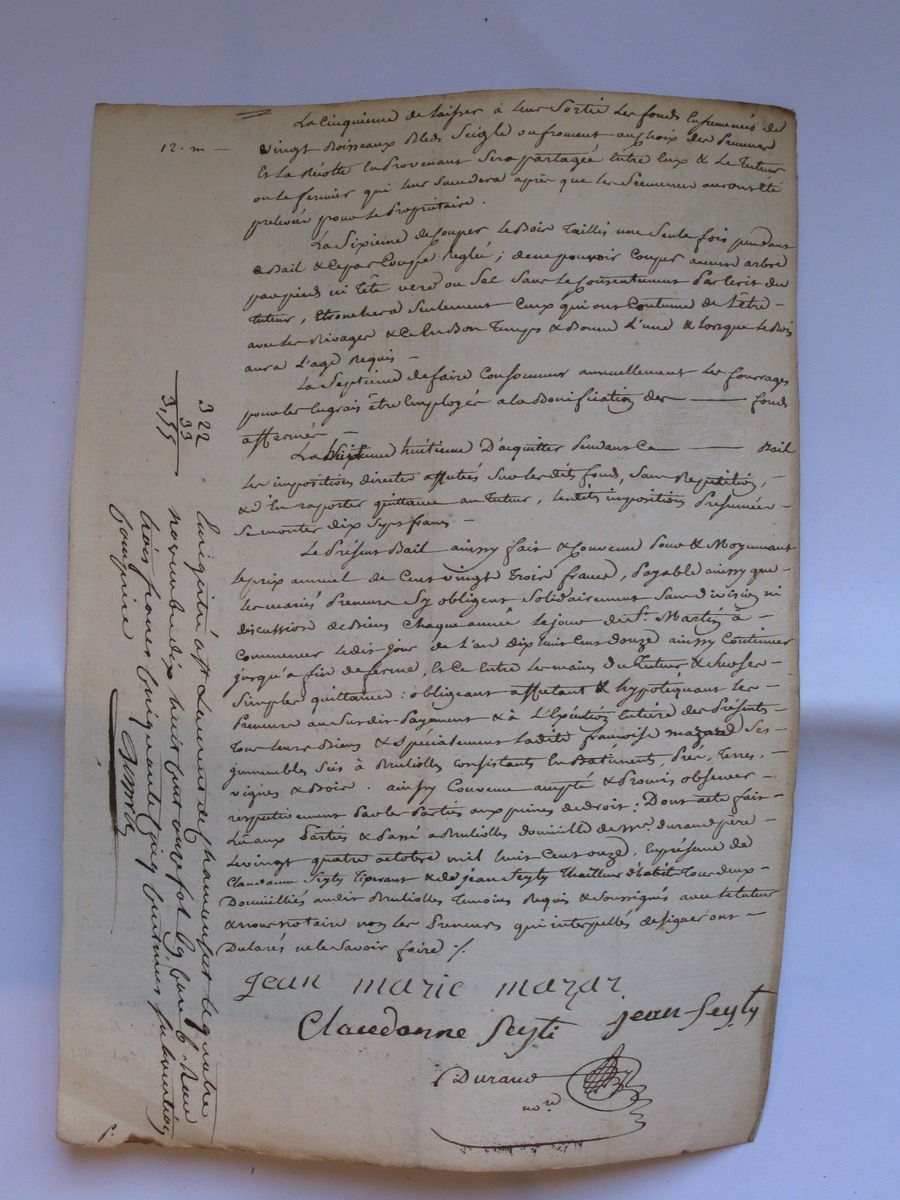 La Cinquieme de laisser à leur Sortie Les fonds Ensemencés de
12. m — vingt Boisseaux Bleds Seigle ou froment au choix des Preneurs
Et La Récolte En Provenant Sera partagée Entre Eux & Le Tuteur
ou Le fermier qui leur Succedera après que les Semences auront Eté
prelevée pour Le Propriétaire.
La Sixieme de Couper Le Bois Taillis une Seule fois pendant
Le Bail & ce par Coupe Reglée ; de ne pouvoir Couper aucun arbre
par pied ni tête vert ou Sec Sans Le Consentement Par Ecrit du
Tuteur, Seulement Ceux qui ont Coutume de L'être –
avec les Rivages & ce En Bon Temps & Bonne Lune & lorsque Le Bois
aura L'age Requis —
La Septieme de faire Consommer annuellement Les fourrages
pour les Engrais être Employés a La Bonification des —— fonds
affermés —
La huitieme D'acquitter Pendant Ce —— Bail
Les impositions directes affectées Sur les dits fonds, Sans Repetition, –
& d'En raporter quittance au Tuteur, lesdites imposition Presumées –
Se monter dix Sept francs —
Le Présent Bail ainsy fait & Convenu Pour & Moyennant
Le prix annuel de Cent vingt Trois francs, Payable ainsy que –
Les mariés Preneurs S'y obligent Solidairement Sans division ni
discussion de Biens Chaque année Le jour de St. Martin à –
Commencer Ledit jour de L'an dix huit Cent douze ainsy Continuer
jusqu'à fin de ferme, Et Ce Entre Les mains du Tuteur & Sur Ses –
Simples quittances : obligeant affectant & hypotéquant Les –
Preneurs au Susdit Payement & à L'Exécution Entiere des Présentes
Tous leurs Biens & Spécialement Ladite françoise mazard Ses –
immeubles Sis à Brullioles Consistants En Batiments, Prés, Terres, –
vignes & Bois. ainsy Convenu accepté & Promis observer –
respectivement Par les Parties aux peines de droit : Dont acte fait –
Lu aux Parties & Passé a Brullioles domicille de Mr. durand père –
Le vingt quatre octobre mil huit Cent onze, En présence de
Claudanne Seyty Tisserant & de jean Seyty Tailleur d'habits Tous deux –
Domicilliés audit Brullioles Temoins Requis & Soussignés avec le tuteur
& nous notaire non les Preneurs qui interpellés de signer ont –
Declarés ne le Savoir faire ./.
jean marie mazar
Claudanne Seyti jean Seyty
Durand
nore
3 22
33
3,55
Enregistré à St Laurent de Chamousset le quatre
novembre dix huit cent onze fol. 69 Reçu
trois francs cinquante cinq centimes subvention
comprise